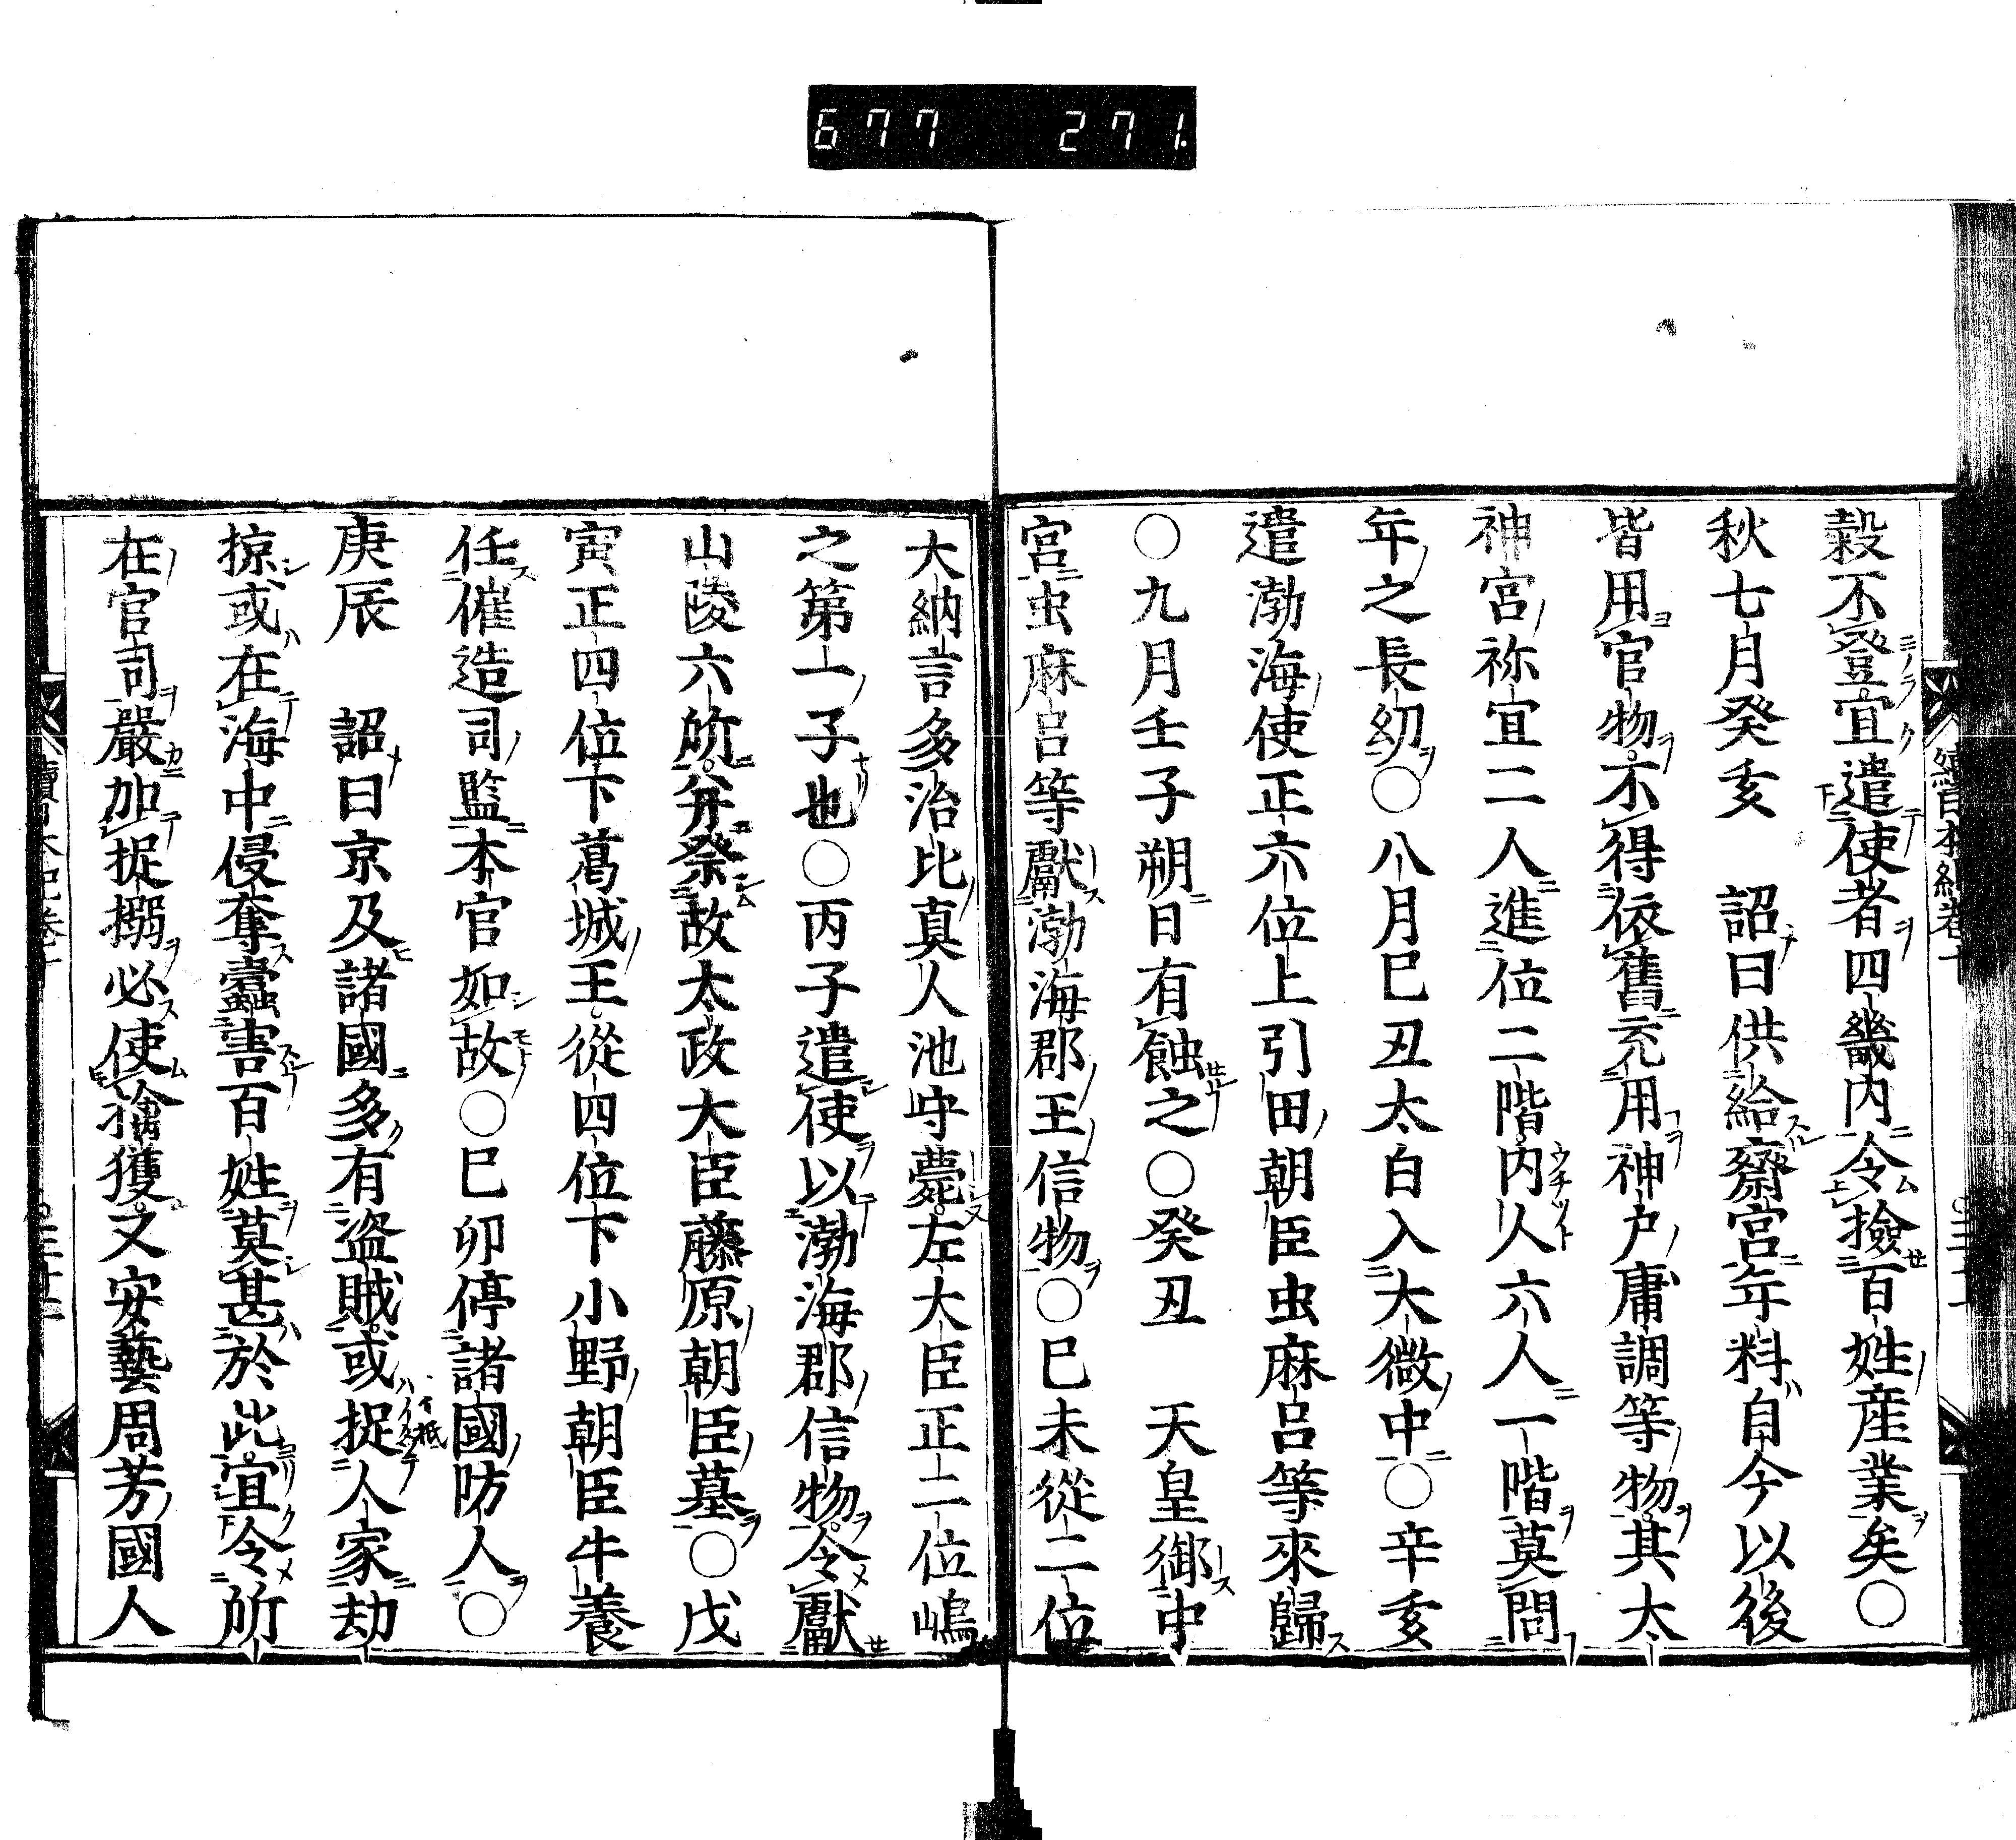 677 271
穀不登宜遣使者四畿內令撿百姓產業矣○
秋七月癸亥 詔曰供給齋宮年料自今以後
皆用官物不得依舊充用神戶庸調等物其太
神宮祢宜二人進位二階內人六人一階莫問
年之長紉○八月巳丑太白入大微中○辛亥
遣渤海使正六位上引田朝臣虫麻呂等來歸
○九月壬子朔日有蝕之○癸丑 天皇御中
宮虫麻呂等獻渤海郡王信物○巳未從二位
大納言多治比真人池守薨左大臣正二位嶋
之第一子也○丙子遣使以渤海郡信物令獻
山陵六所并祭故太政大臣藤原朝臣墓○戊
寅正四位下葛城王從四位下小野朝臣牛養
任催造司監本官如故○巳卯停諸國防人○
庚辰 詔曰京及諸國多有盜賊或捉人家劫
掠或在海中侵奪蠹害百姓莫甚於此宜令所
在官司嚴加捉搦必使擒獲又安藝周芳國人